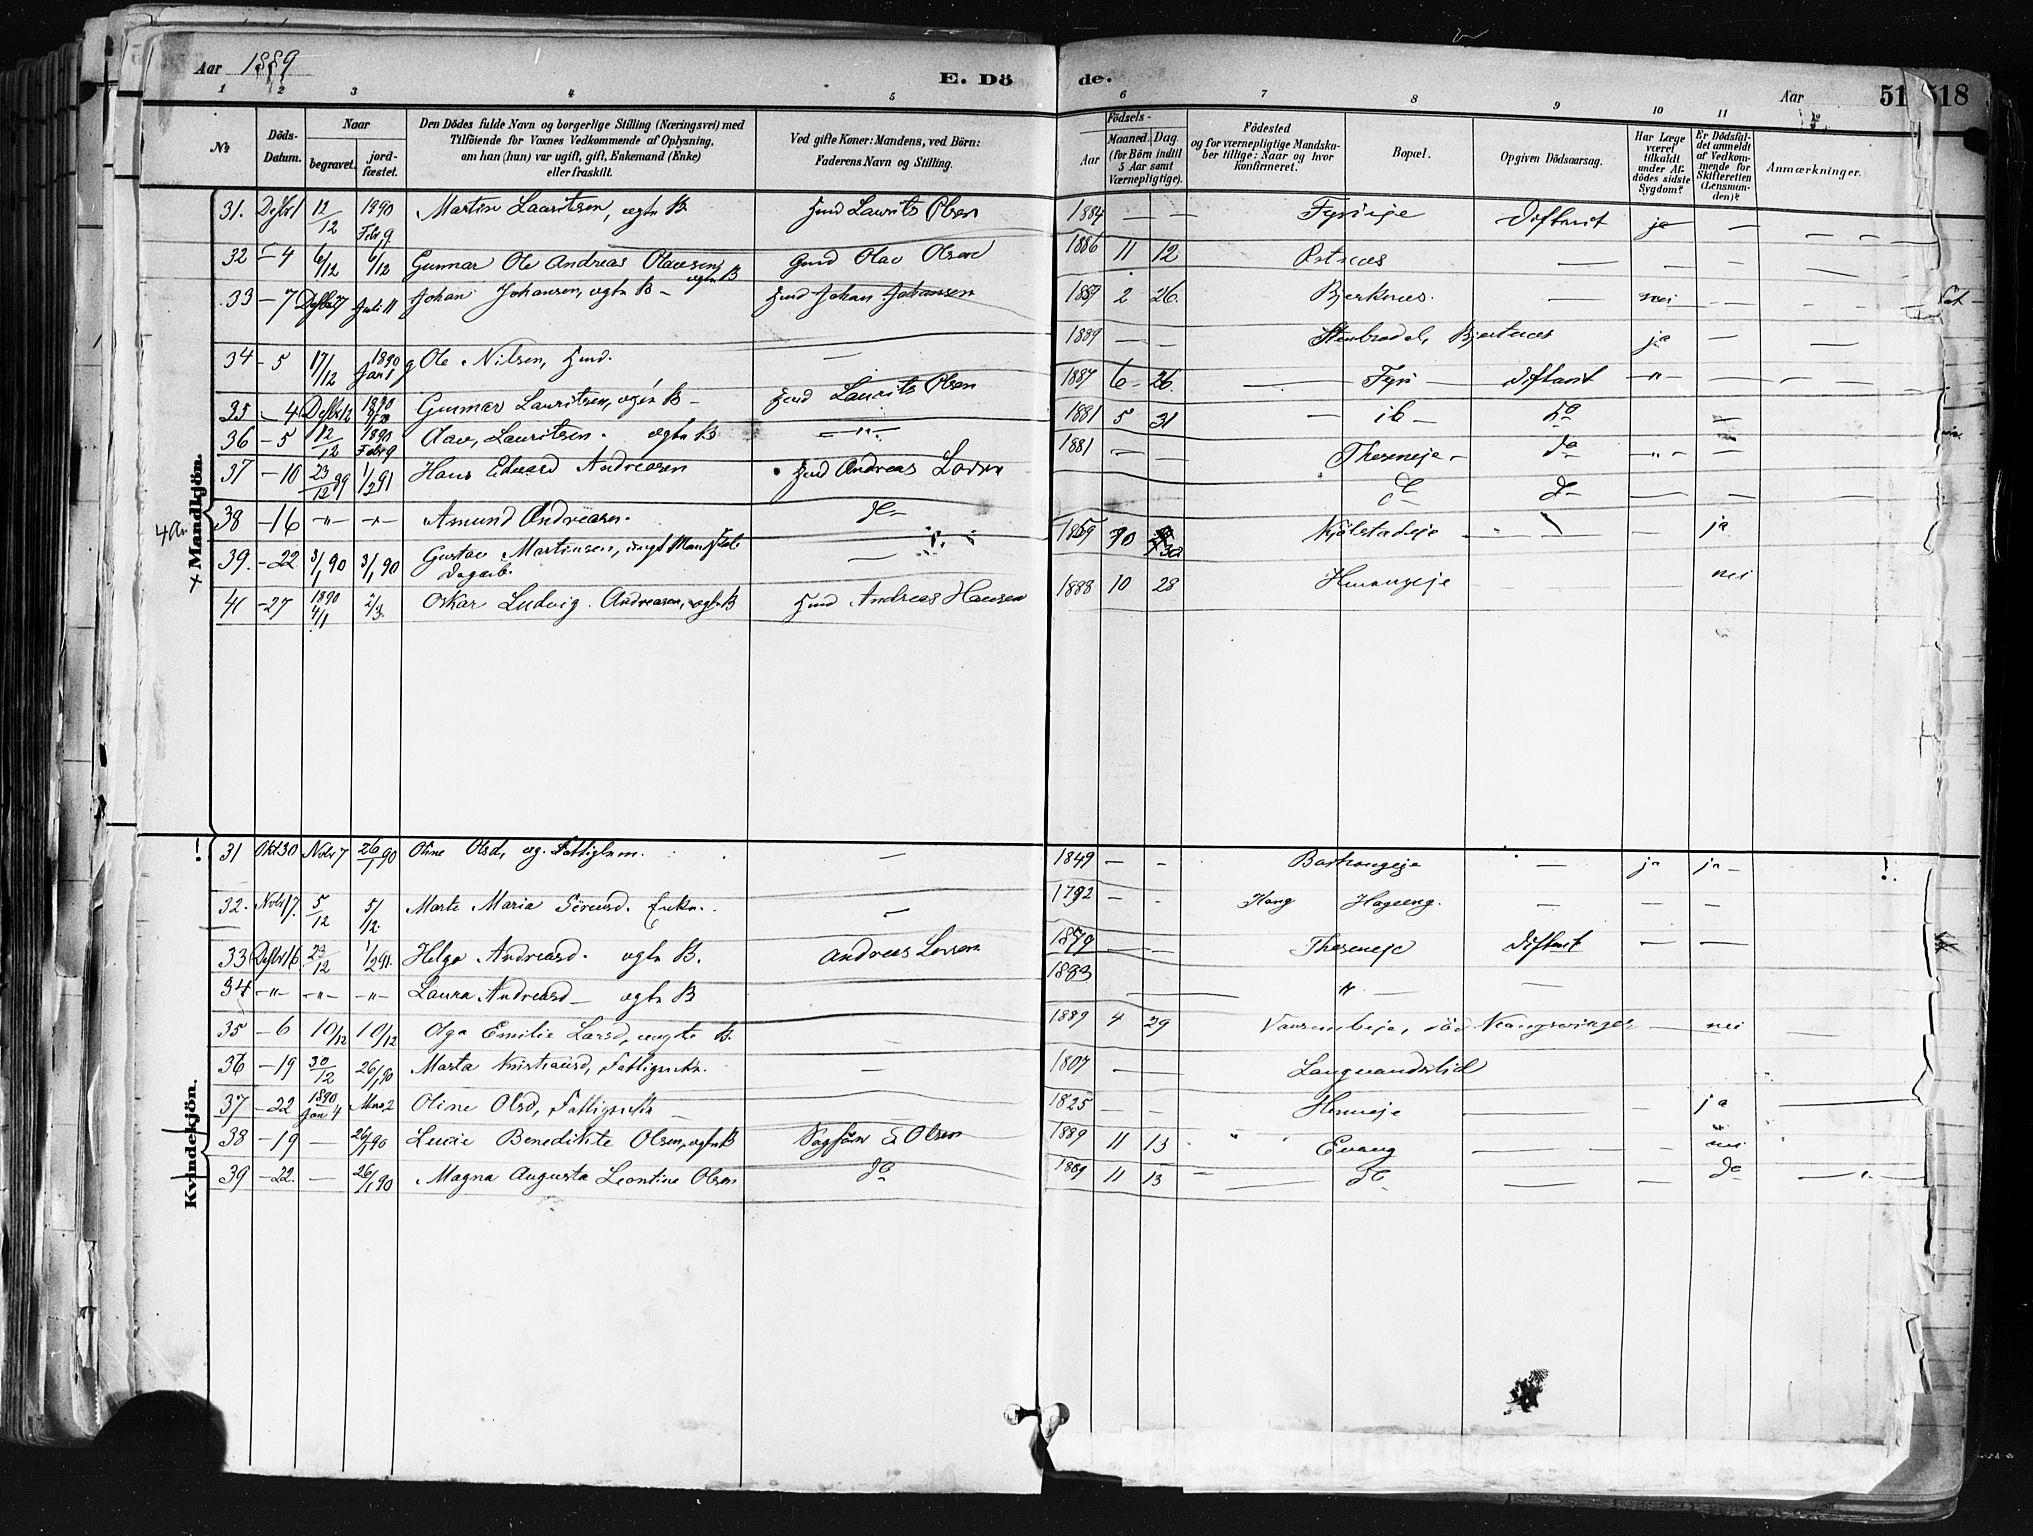 Aar 1889
E. Døde.
Aar
51
518
1 2 3 4 5 6 7 8 9 10 11 12
No
Döds-Datum.
Naar
begravet.
jord-fæstet.
Den Dödes fulde Navn og borgerlige Stilling (Næringsvei) med
Tilföiende for Voxnes Vedkommende af Oplysning,
om han (hun) var ugift, gift, Enkemand (Enke)
eller fraskilt.
Ved gifte Koner: Mandens, ved Börn:
Faderens Navn og Stilling.
Födsels-
Aar
Maaned. Dag.
(for Börn indtil
5 Aar samt
Værnepligtige).
Födested
og for værnepligtige Mandska-
ber tillige: Naar og hvor
konfirmeret.
Bopæl.
Opgiven Dödsaarsag.
Har Læge
været
tilkaldt
under Af-
dödes sidste
Sygdom?
Er Dödsfal-
det anmeldt
af Vedkom-
mende for
Skifteretten
(Lensman-
den)?
Anmærkninger.
Mandkjön.
31. Desbr 1 12/12 1890 Febr 9 Martin Lauritsen, ægte B Hmd Laurits Olsen 1884 — — Fyrieje Difterit ja — —
32 — 4 6/12 6/12 Gunnar Ole Andreas Olavsen ægte B Gmd Olav Olsen 1886 11 12 Ostnæs — — — —
33 — 7 Desbr 27 Juli 11 Johan Johansen, ægte B — Hmd Johan Johansen 1889 2 26. Bjerknæs. — nei — —
34 — 5 17/12 1890 Jan Ole Nilsen, Hmd. — 1889 — — Bjerknes ja — —
35 — 4 Desbr 12 1890 Gunnar Lauritsen, ægte B — Hmd Laurits Olsen 1887 6 — 26. — Fyri — Difterit — " — — —
36 — 5 12/12 1890 Febr 9 Olav, Lauritsen. ægte B — " — 1881 5 31 — ib — do —
37 — 10 23/12 89 1/2 91 Hans Edvard Andreasen Hmd Andreas Larsen 1881 — — Theseneje — do — " — —
38 — 16 — " — — " — Amund Andreasen. do do do — — —
39. — 22 3/1 90 3/1 90 Gustav Martinsen, ungt Mandfolk — 1869 Kjölstadeje — ja
Dagarb.
41 — 27 1890 4/1 2/3 Oskar Ludvig Andreasen, ægte B Hmd Andreas Hansen 1888 10 28 nei
Kvindekjön.
! 31 Okt 30 Novb 7 26/1 90 Oline Olsd, ug. Fattiglem. — 1849 — — — ja ja — !
32. Novbr 17. 5/12 5/12. Marte Maria Sörensd. Enke. — 1792 — — Hageeng. — — —
33 Desbr 16 23/12 1/2 91. Helga Andreasd. ægte B. Andreas Larsen 1879 — — Theseneje Difterit — —
34 — " — — " — — " — Laura Andreasd — ægte B 1883 — " — —
35 — 6 10/12 10/12 Olga Emilie Larsd, uægte B. — 1889 4 29 Kongsvinger — nei —
36 — 19 30/12 26/1 90 Marta Kristiansd, Fattigenke. — 1807 — — Langvandslid
37 — 22 1890 Jan 4 Mars 2 Oline Olsd, Fattigenke — 1825 — — — — ja
38 — 19 — 26/1 90 Lucie Benedikte Olsen, ægte B Olsen 1889 11 13 " " Evang — — nei
39 — 22. — 26/1 90 Magna Augusta Leontine Olsen do 1889 11 13 — do — — do — " —